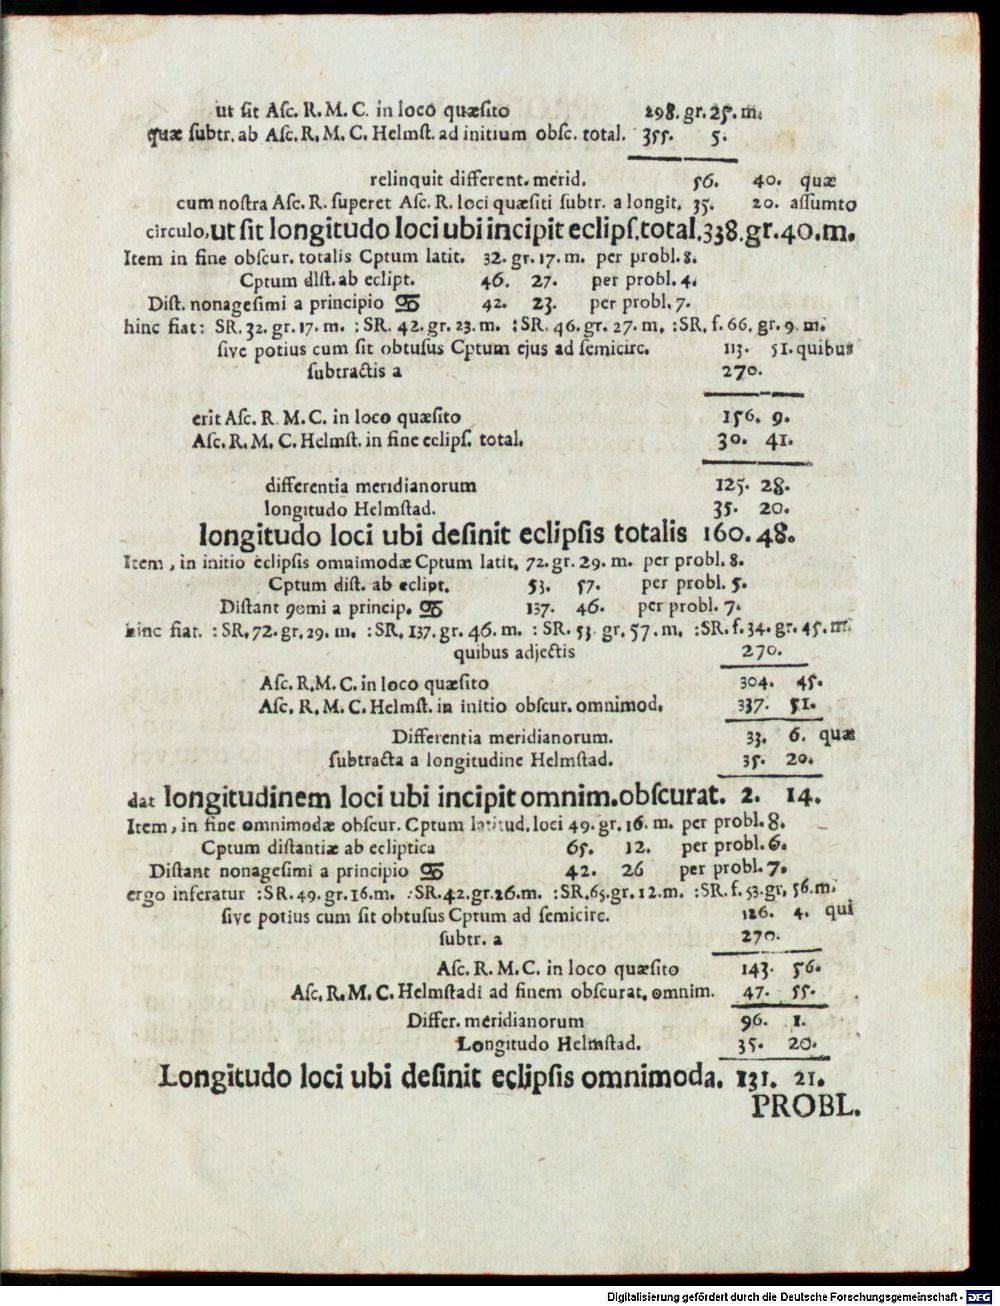 ut ſit Aſc. R. M. C. in loco quæſito 298. gr. 25. m.
quæ ſubtr. ab Aſc. R. M. C. Helmſt. ad initium obſc. total. 355. 5.
relinquit different. merid. 56. 40. quæ
cum noſtra Aſc. R. ſuperet Aſc. R. loci quæſiti ſubtr. a longit. 35. 20. aſſumto
circulo, ut ſit longitudo loci ubi incipit eclipſ. total. 338. gr. 40. m.
Item in fine obſcur. totalis Cptum latit. 32. gr. 17. m. per probl. 8.
Cptum dIſt. ab eclipt. 46. 27. per probl. 4.
Diſt. nonageſimi a principio ♋ 42. 23. per probl. 7.
hinc fiat: SR. 32. gr. 17. m. : SR. 42. gr. 23. m. : SR. 46. gr. 27. m. : SR. f. 66. gr. 9. m.
ſive potius cum ſit obtuſus Cptum ejus ad ſemicirc. 113. 51. quibus
ſubtractis a 270.
erit Aſc. R. M. C. in loco quæſito 156. 9.
Aſc. R. M. C. Helmſt. in fine eclipſ. total. 30. 41.
differentia meridianorum 125. 28.
longitudo Helmſtad. 35. 20.
longitudo loci ubi deſinit eclipſis totalis 160. 48.
Item, in initio eclipſis omnimodæ Cptum latit. 72. gr. 29. m. per probl. 8.
Cptum diſt. ab eclipt. 53. 57. per probl. 5.
Diſtant 90mi a princip. ♋ 137. 46. per probl. 7.
hinc fiat. : SR. 72. gr. 29. m. : SR. 137. gr. 46. m. : SR. 53 gr. 57. m. : SR. f. 34. gr. 45. m.
quibus adjectis 270.
Aſc. R. M. C. in loco quæſito 304. 45.
Aſc. R. M. C. Helmſt. in initio obſcur. omnimod. 337. 51.
Differentia meridianorum. 33. 6. quæ
ſubtracta a longitudine Helmſtad. 35. 20.
dat longitudinem loci ubi incipit omnim. obſcurat. 2. 14.
Item, in fine omnimodæ obſcur. Cptum latitud. loci 49. gr. 16. m. per probl. 8.
Cptum diſtantiæ ab ecliptica 65. 12. per probl. 6.
Diſtant nonageſimi a principio ♋ 42. 26 per probl. 7.
ergo inferatur : SR. 49. gr. 16. m. : SR. 42. gr. 26. m. : SR. 65. gr. 12. m. : SR. f. 53. gr. 56. m.
ſive potius cum ſit obtuſus Cptum ad ſemicirc. 126. 4. qui
ſubtr. a 270.
Aſc. R. M. C. in loco quæſito 143. 56.
Aſc. R. M. C. Helmſtadi ad finem obſcurat. omnim. 47. 55.
Differ. meridianorum 96. 1.
Longitudo Helmſtad. 35. 20.
Longitudo loci ubi deſinit eclipſis omnimoda. 131. 21.
PROBL.
Digitalisierung gefördert durch die Deutsche Forschungsgemeinschaft - DFG